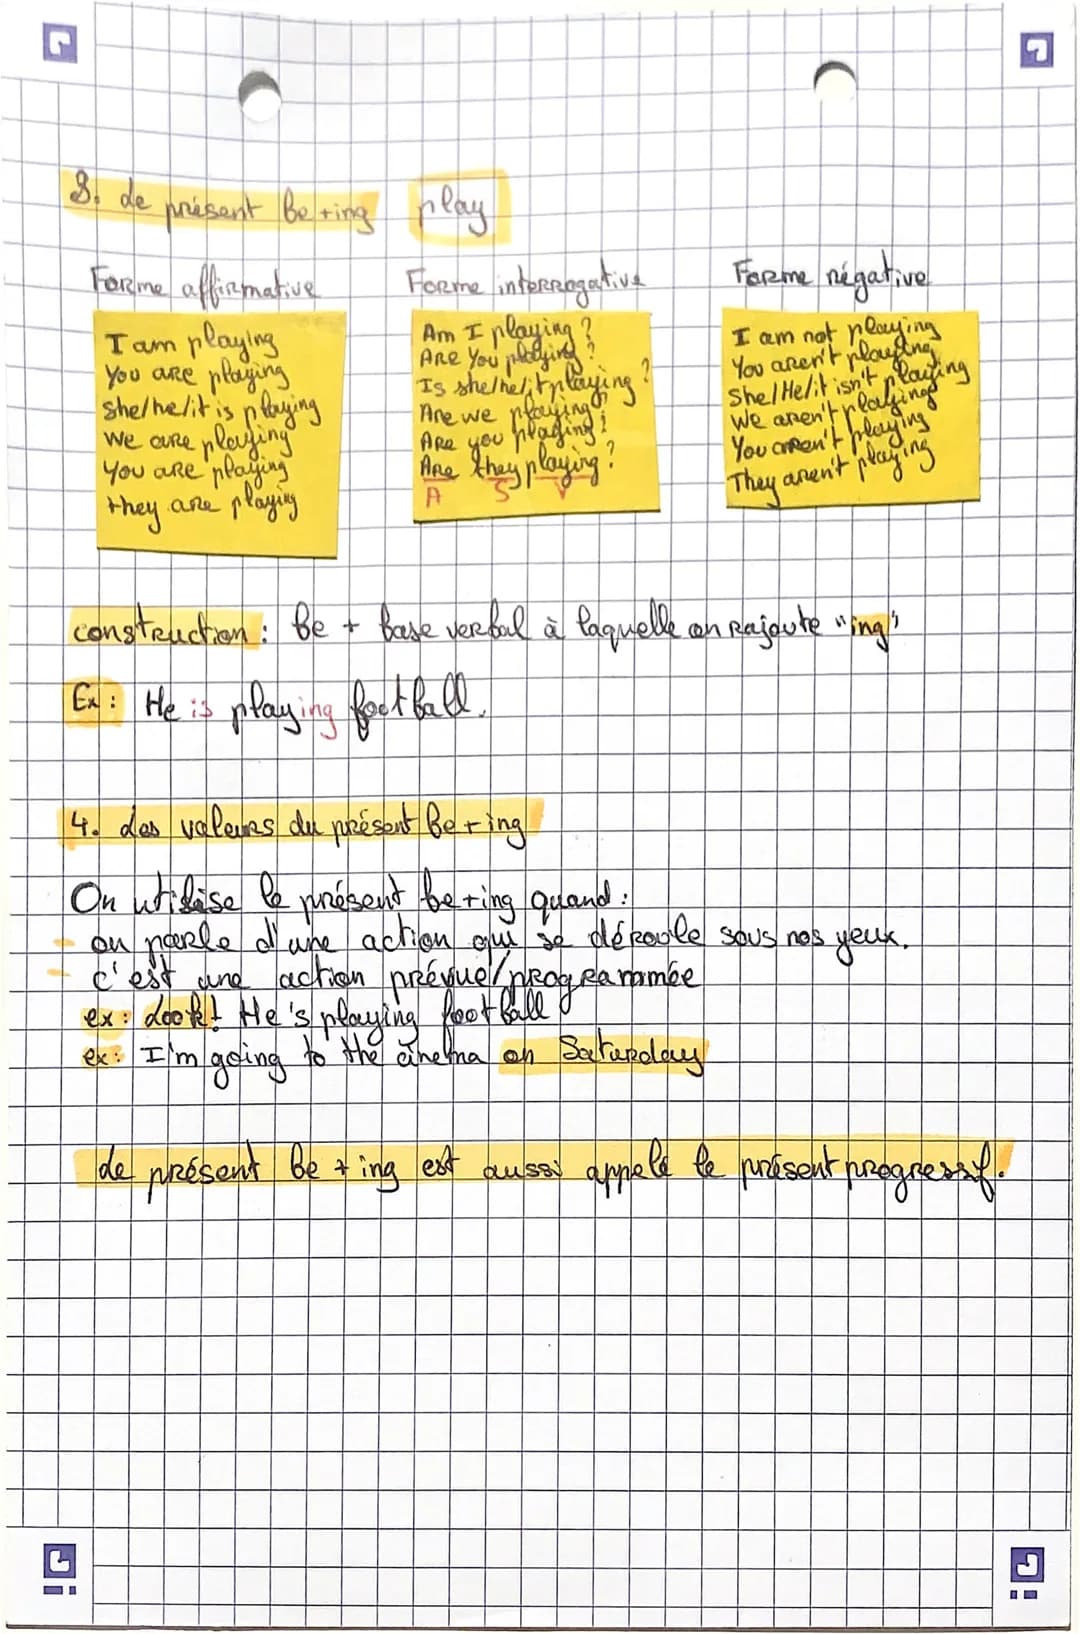 3. Le présent be + ing play
Forme affirmative
I am playing
You are playing
She/he/it is playing
We are playing
You are playing
they are playing
Forme interrogative
Am I playing ?
Are You playing ?
Is she/he/it playing ?
Are we playing ?
Are you playing ?
Are they playing ?
A S V
Forme négative
I am not playing
You aren't playing
She/He/it isn't playing
We aren't playing
You aren't playing
They aren't playing
construction : be + base verbal à laquelle on rajoute "ing"
Ex : He is playing football.
4. Les valeurs du présent be + ing
On utilise le présent be + ing quand :
- on parle d'une action qui se déroule sous nos yeux.
- c'est une action prévue/programmée
ex : Look! He's playing football
ex : I'm going to the cinema on Saturday
Le présent be + ing est aussi appelé le présent progressif.